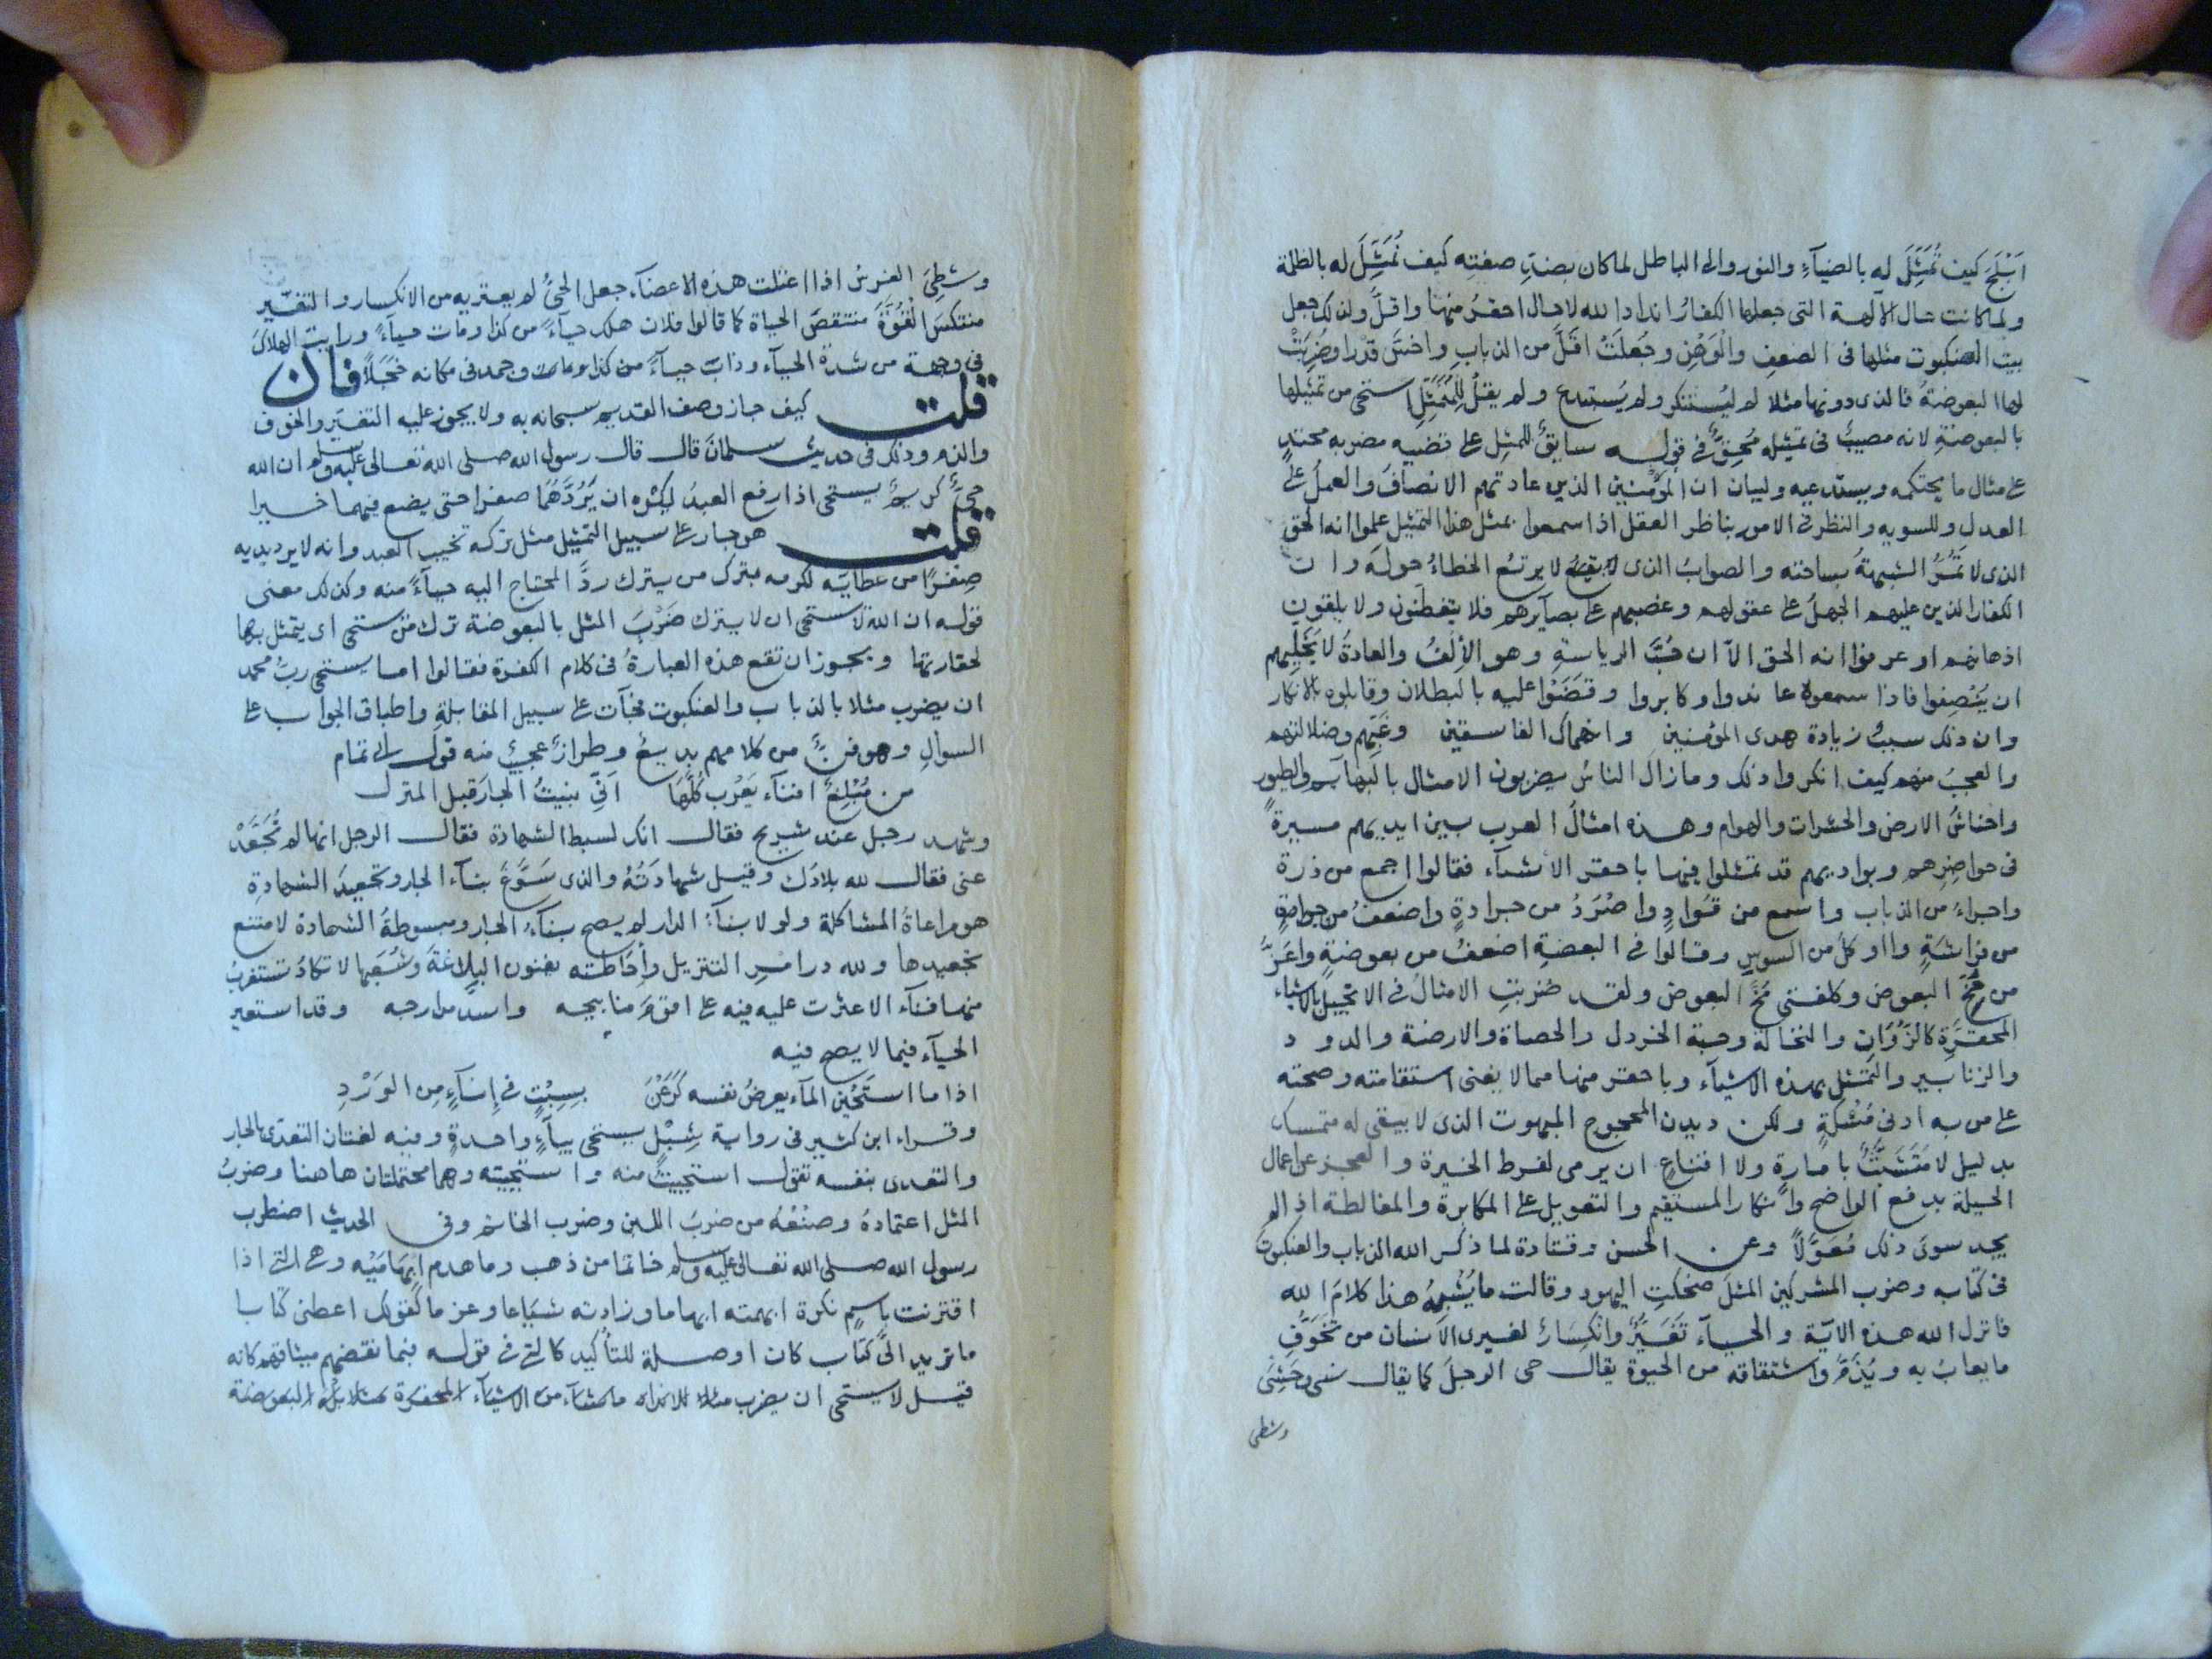 ابلج كيف تمثل له بالضيآء والنور والى الباطل لما كان بضد صفته كيف تمثل له بالظلمة
ولما كانت حال الآلهة التى جعلها الكفار اندادا لله لا حال احقر منها واقل ولذلك جعل
بيت العنكبوت مثلها فى الضعف والوهن وجعلت اقل من الذباب واخس قدرا وضربت
لها البعوضة فالذى دونها مثلا لم يستنكر ولم يستبدع ولم يقل للمتمثل استحى من تمثيلها
بالبعوضة لانه مصيب فى تمثيله محق فى قوله سابق للمثل على قضيه مضربه محتذ
على مثال ما يحتكمه ويستدعيه ولبيان ان المؤمنين الذين عادتهم الانصاف والعمل على
العدل وللسويه والنظر فى الامور بناظر العقل اذا سمعوا بمثل هذا التمثيل علموا انه الحق
الذى لا تمر الشبهة بساحته والصواب الذى لا يرتع الخطاء حوله وان
الكفار الذين عليهم الجهل على عقولهم وغصبهم على بصآيرهم فلا يتفطنون ولا يلقون
اذهانهم او عرفوا انه الحق الا ان حب الرياسة وهو الألف والعادة لا يخليهم
ان ينصفوا فاذا سمعوه عاندوا وكابروا وقضوا عليه بالبطلان وقابلوه بالانكار
وان ذلك سبب زيادة هدى المؤمنين وانهماك الفاسقين وغيهم وضلالتهم
والعجب منهم كيف انكروا ذلك ومازال الناس يضربون الامثال بالبهآيم والطيور
واحناش الارض والحشرات والهوام وهذه امثال العرب بين ايديهم مسيرة
فى حواضرهم وبواديهم قد تمثلوا فيها باحقر الاشيآء فقالوا اجمع من ذرة
واجراء من الذباب واسمع من قراد واصرد من جرادة واضعف من جرادة
من فراشة وااوكل من السوس وقالوا فى البعضة اضعف من بعوضة واعز
من مخ البعوض وكلفتنى مخ البعوض ولقد ضربت الامثال فى الانجيل بالاشياء
المحقرة كالزوان والنخالة وحبة الخردل والحصاة والارضة والدود
والزنابير والتمثل بهذه الاشيآء وباحقر منها مما لا يغنى استقامته وصحته
على من به ادنى مسكة ولكن ديدن المحجوج المبهوت الذى لا يبقى له متمسك
بدليل لا متشبث بامارة ولا اقناع ان يرمى لفرط الخيرة والعجز عن اعمال
الحيلة بدفع الواضح وانكار المستقيم والتعويل على المكابرة والمغالطة اذا لم
يجد سوى ذلك معولا وعن الحسن وقتادة لما ذكر الله الذباب والعنكبوت
فى كتابه وضرب المشركين المثل ضحكت اليهود وقالت ما يشبه هذا كلام الله
فانزل الله هذه الاية والحيآء تغير وانكسار لغيرى الانسان من تخوف
ما يعاب به ويذم واشتقاقه من الحيوة يقال حى الرجل كما يقال نسى وحشى
وشظى
وشظى الفرس اذا اعتلت هذه الاعضآء جعل الحى لم يعتريه من الانكسار والتغير
منتكس القوة منتقص الحياة كما قالوا فلان هلك حيآء من كذا ومات حيآء ورايت الهلاك
فى وجهه من شدة الحيآء وذاب حيآء من كذا ومات وجمد فى مكانه خجلا فان
قلت كيف جاز وصف القديم سبحانه به ولا يجوز عليه التغير والخوف
والذم وذلك فى حديث سلمان قال قال رسول الله صلى الله تعالى عليه وسلم ان الله
حى كريم يستحى اذا رفع العبد اليه ان يردهما صفرا حتى يضع فيهما خيرا
قلت هو جار على سبيل التمثيل مثل تركه تخيب العبد وانه لا يرد يديه
صفرا من عطآيه لكرمه بترك من يترك رد المحتاج اليه حيآء منه وكذلك معنى
قوله ان الله لا يستحى ان لا يترك ضرب المثل بالبعوضة ترك من يستحى اى يتمثل بها
لحقارتها ويجوز ان تقع هذه العبارة فى كلام الكفرة فقالوا اما يستحى رب محمد
ان يضرب مثلا بالذباب والعنكبوت فجآت على سبيل المقابلة واطباق الجواب على
السوال وهو فن من كلامهم بديع وطراز عجيب منه قول ابى تمام
من مبلغ افنآء يعرب كلها انى بنيت الجار قبل المنزل
وشهد رجل عند شريح فقال انك لسبط الشهادة فقال الرجل انها لم تجعد
عنى فقال لله بلادك وقبل شهادته والذى سوغ بنآء الجار وتجعيد الشهادة
هو مراعاة المشاكلة ولولا بنآء الدار لم يصح بنآء الجار وسبوطة الشهادة لامتنع
تجعيدها ولله در امر التنزيل واحاطته بفنون البلاغة وشعبها لا تكاد تستغرب
منها فنآء الا عثرت عليه فيه على اقوم مناهجه واسد مدارجه وقد استعير
الحيآء فيما لا يصح فيه
اذا ما استحين المآء يعرض نفسه كرعن بسبت فى انآء من الورد
وقراء ابن كثير فى رواية شبل يستحى بيآء واحدة وفيه لغتان التعدى بالجار
والتعدى بنفسه تقول استحييت منه واستحييته وهما محتملتان هاهنا وضرب
المثل اعتماده وصنعه من ضرب اللبن وضرب الخاتم وفى الحديث اضطرب
رسول الله صلى الله تعالى عليه وسلم خاتما من ذهب وما هدم ابهاميه وهى التى اذا
اقترنت باسم نكرة ابهمته ابهاما وزادته شياعا وعز ما كقولك اعطنى كتابا
ما تريد اى كتاب كان او صلة للتأكيد كالتى فى قوله فبما نقضهم ميثاقهم كانه
قيل لا يستحى ان يضرب مثلا للانداد ما شآء من الاشيآء المحقرة مثلا بله البعوضة